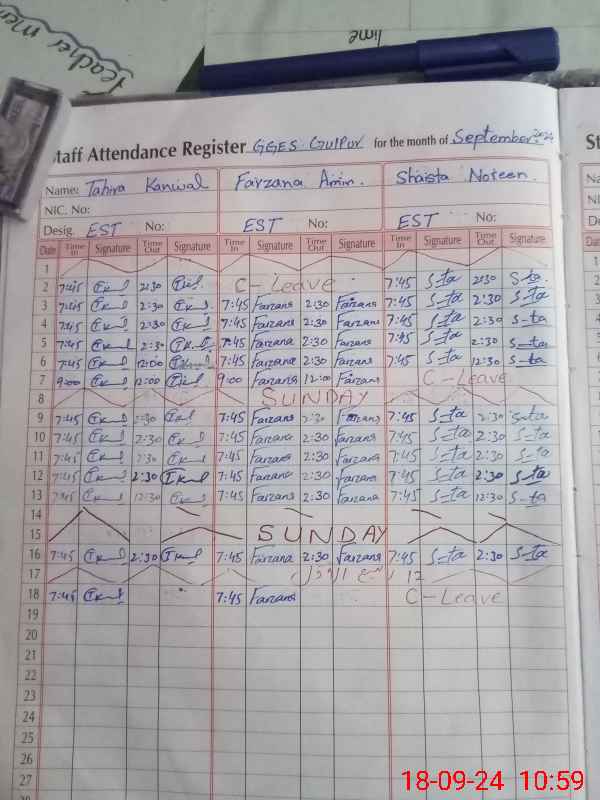 Teacher mem
Time
Staff Attendance Register GGES Gulpur for the month of September. 2024
St
Name: Tahira Kanwal Farzana Amin. Shaista Noreen.
NIC. No:
Desig. EST No: EST No: EST No:
Date Time In Signature Time Out Signature Time In Signature Time Out Signature Time In Signature Time Out Signature
1
2 7:45 2:30 C-Leave 7:45 S-ta 2:30 S-ta
3 7:45 2:30 7:45 Farzana 2:30 Farzana 7:45 S-ta 2:30 S-ta
4 7:45 2:30 7:45 Farzana 2:30 Farzana 7:45 S-ta 2:30 S-ta
5 7:45 2:30 7:45 Farzana 2:30 Farzana 7:45 S-ta 2:30 S-ta
6 7:45 12:00 7:45 Farzana 2:30 Farzana 7:45 S-ta 12:30 S-ta
7 9:00 12:00 9:00 Farzana 12:00 Farzana C-Leave
8 SUNDAY
9 7:45 2:30 7:45 Farzana 2:30 Farzana 7:45 S-ta 2:30 S-ta
10 7:45 2:30 7:45 Farzana 2:30 Farzana 7:45 S-ta 2:30 S-ta
11 7:45 2:30 7:45 Farzana 2:30 Farzana 7:45 S-ta 2:30 S-ta
12 7:45 2:30 7:45 Farzana 2:30 Farzana 7:45 S-ta 2:30 S-ta
13 7:45 12:30 7:45 Farzana 2:30 Farzana 7:45 S-ta 12:30 S-ta
14
15 SUNDAY
16 7:45 2:30 7:45 Farzana 2:30 Farzana 7:45 S-ta 2:30 S-ta
17 12 ربیع الاول
18 7:45 7:45 Farzana C-Leave
19
20
21
22
23
24
25
26
27
18-09-24 10:59